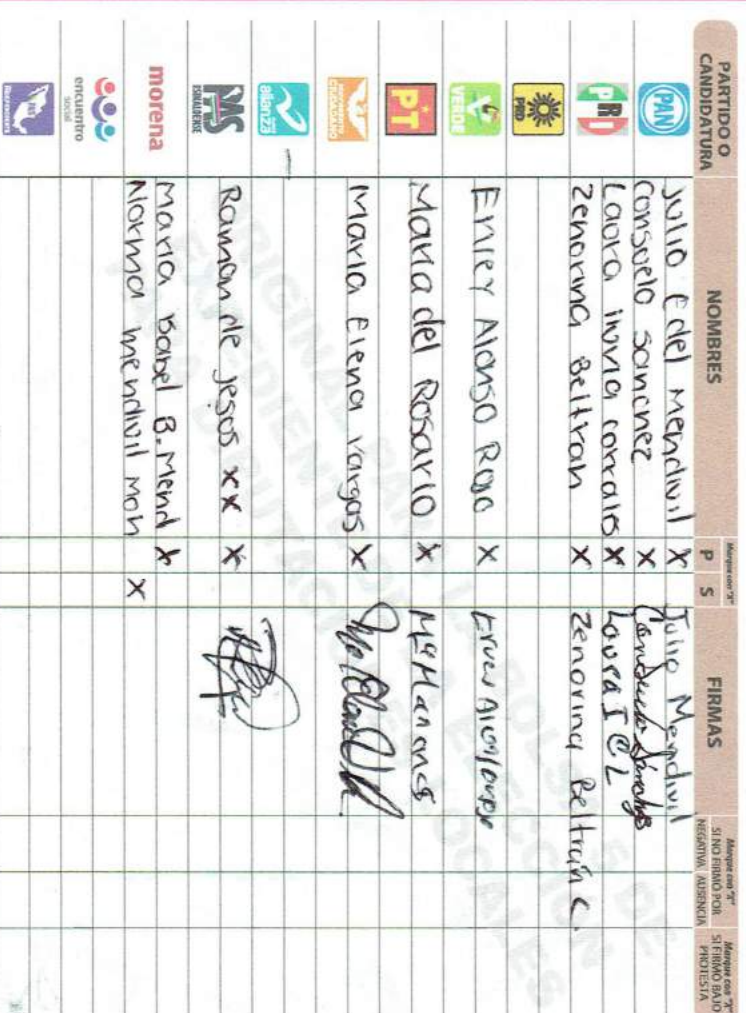 PARTIDO O CANDIDATURA NOMBRES Marque con "X" P S FIRMAS Marque con "X" SI NO FIRMÓ POR NEGATIVA AUSENCIA Marque con "X" SI FIRMÓ BAJO PROTESTA
PAN Julio E del Mendivil X Julio Mendivil
Consuelo Sanchez X Consuelo Sánchez
PRI Laura irma corrales X Laura I C L
Zenorina Beltran X Zenorina Beltrán C.
PRD
VERDE Alonso Rojo X
PT Maria del Rosario X
MOVIMIENTO CIUDADANO Maria Elena Vargas X
nueva alianza
PAS SINALOENSE Ramon de jesos xx X
morena Maria Isabel B. Mend X
Norma mendivil Mon X
encuentro social
INDEPENDIENTE
ORIGINAL PARA LA BOLSA DE
EXPEDIENTE DE LA ELECCIÓN
PARA DIPUTACIONES LOCALES